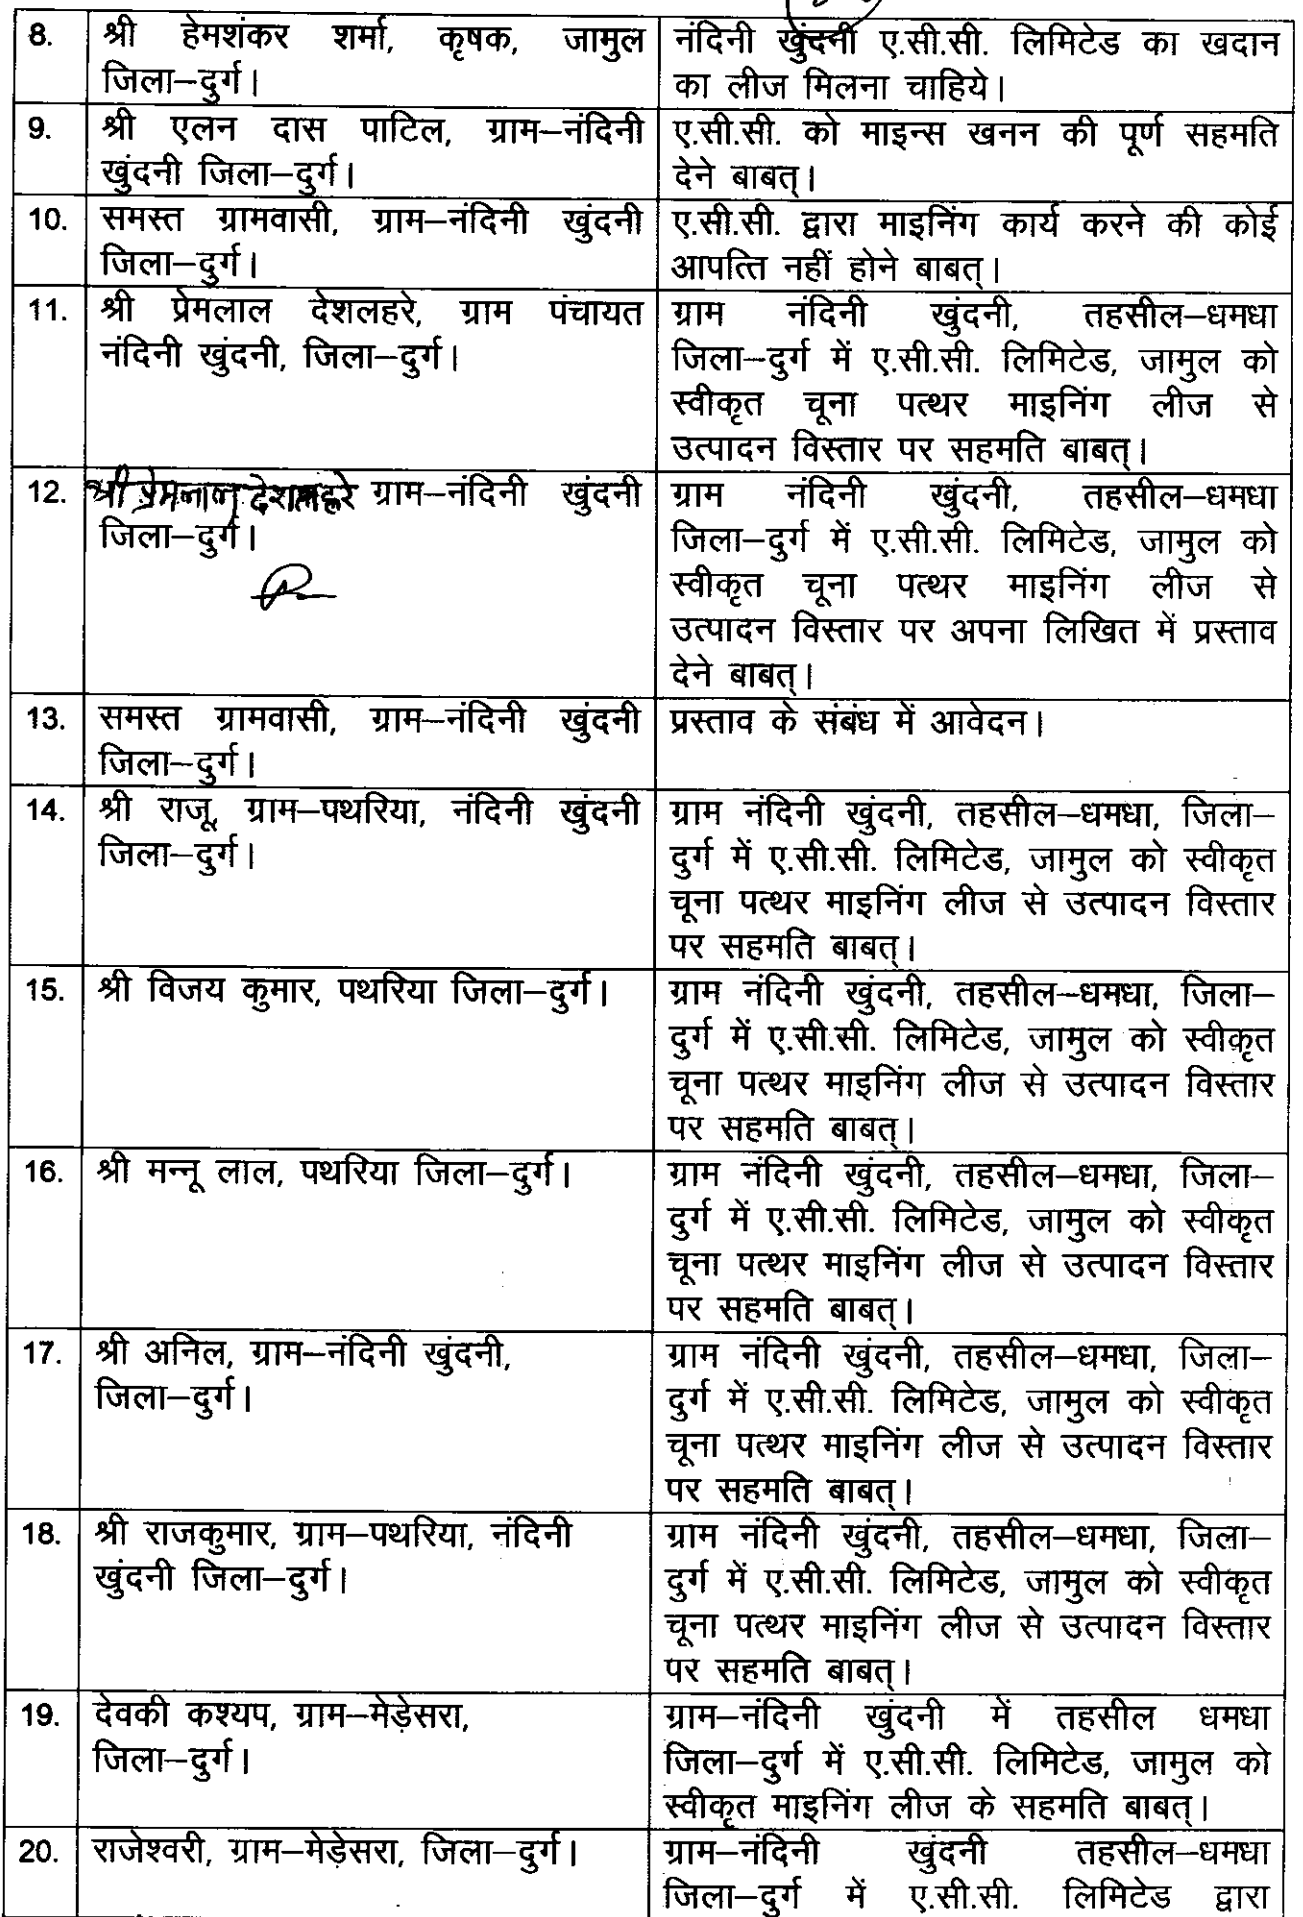 8. श्री हेमशंकर शर्मा, कृषक, जामुल
जिला–दुर्ग।
नंदिनी खुंदनी ए.सी.सी. लिमिटेड का खदान
का लीज मिलना चाहिये।
9. श्री एलन दास पाटिल, ग्राम–नंदिनी
खुंदनी जिला–दुर्ग।
ए.सी.सी. को माइन्स खनन की पूर्ण सहमति
देने बाबत्।
10. समस्त ग्रामवासी, ग्राम–नंदिनी खुंदनी
जिला–दुर्ग।
ए.सी.सी. द्वारा माइनिंग कार्य करने की कोई
आपत्ति नहीं होने बाबत्।
11. श्री प्रेमलाल देशलहरे, ग्राम पंचायत
नंदिनी खुंदनी, जिला–दुर्ग।
ग्राम नंदिनी खुंदनी, तहसील–धमधा
जिला–दुर्ग में ए.सी.सी. लिमिटेड, जामुल को
स्वीकृत चूना पत्थर माइनिंग लीज से
उत्पादन विस्तार पर सहमति बाबत्।
12. श्री प्रेमलाल देशलहरे ग्राम–नंदिनी खुंदनी
जिला–दुर्ग।
ग्राम नंदिनी खुंदनी, तहसील–धमधा
जिला–दुर्ग में ए.सी.सी. लिमिटेड, जामुल को
स्वीकृत चूना पत्थर माइनिंग लीज से
उत्पादन विस्तार पर अपना लिखित में प्रस्ताव
देने बाबत्।
13. समस्त ग्रामवासी, ग्राम–नंदिनी खुंदनी
जिला–दुर्ग।
प्रस्ताव के संबंध में आवेदन।
14. श्री राजू, ग्राम–पथरिया, नंदिनी खुंदनी
जिला–दुर्ग।
ग्राम नंदिनी खुंदनी, तहसील–धमधा, जिला–
दुर्ग में ए.सी.सी. लिमिटेड, जामुल को स्वीकृत
चूना पत्थर माइनिंग लीज से उत्पादन विस्तार
पर सहमति बाबत्।
15. श्री विजय कुमार, पथरिया जिला–दुर्ग।
ग्राम नंदिनी खुंदनी, तहसील–धमधा, जिला–
दुर्ग में ए.सी.सी. लिमिटेड, जामुल को स्वीकृत
चूना पत्थर माइनिंग लीज से उत्पादन विस्तार
पर सहमति बाबत्।
16. श्री मन्नू लाल, पथरिया जिला–दुर्ग।
ग्राम नंदिनी खुंदनी, तहसील–धमधा, जिला–
दुर्ग में ए.सी.सी. लिमिटेड, जामुल को स्वीकृत
चूना पत्थर माइनिंग लीज से उत्पादन विस्तार
पर सहमति बाबत्।
17. श्री अनिल, ग्राम–नंदिनी खुंदनी,
जिला–दुर्ग।
ग्राम नंदिनी खुंदनी, तहसील–धमधा, जिला–
दुर्ग में ए.सी.सी. लिमिटेड, जामुल को स्वीकृत
चूना पत्थर माइनिंग लीज से उत्पादन विस्तार
पर सहमति बाबत्।
18. श्री राजकुमार, ग्राम–पथरिया, नंदिनी
खुंदनी जिला–दुर्ग।
ग्राम नंदिनी खुंदनी, तहसील–धमधा, जिला–
दुर्ग में ए.सी.सी. लिमिटेड, जामुल को स्वीकृत
चूना पत्थर माइनिंग लीज से उत्पादन विस्तार
पर सहमति बाबत्।
19. देवकी कश्यप, ग्राम–मेड़ेसरा,
जिला–दुर्ग।
ग्राम–नंदिनी खुंदनी में तहसील धमधा
जिला–दुर्ग में ए.सी.सी. लिमिटेड, जामुल को
स्वीकृत माइनिंग लीज के सहमति बाबत्।
20. राजेश्वरी, ग्राम–मेड़ेसरा, जिला–दुर्ग।
ग्राम–नंदिनी खुंदनी तहसील–धमधा
जिला–दुर्ग में ए.सी.सी. लिमिटेड द्वारा